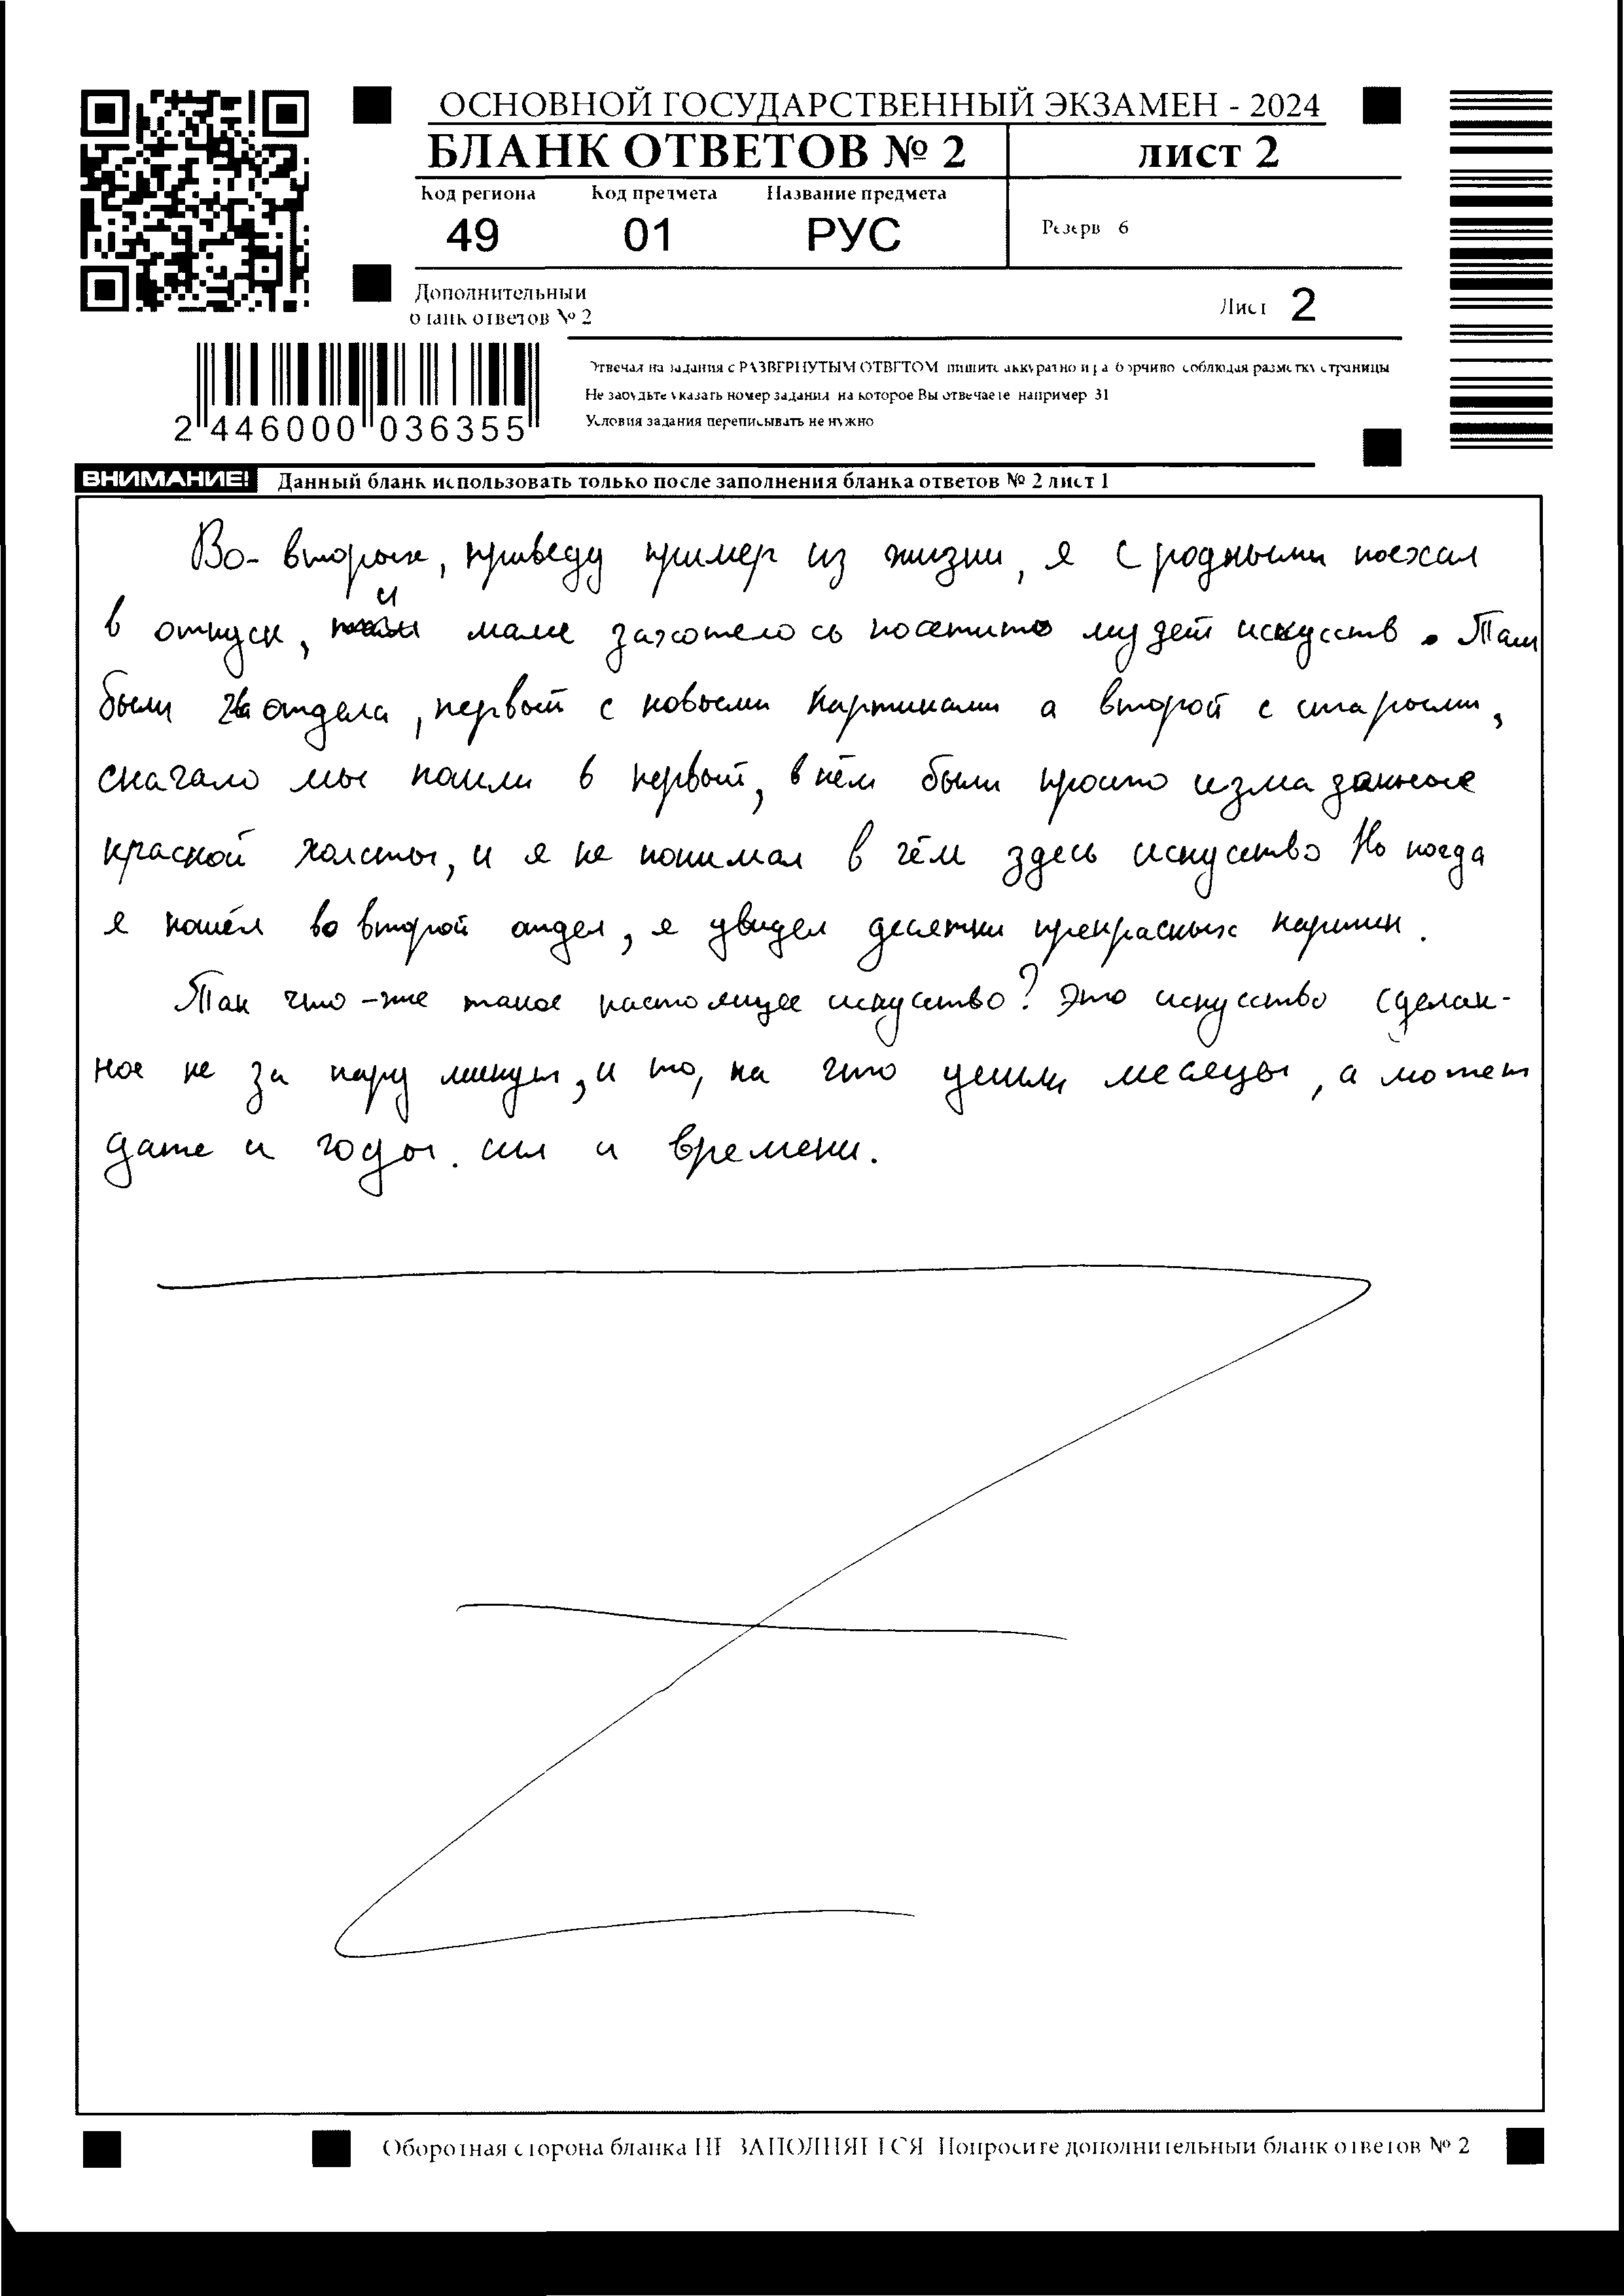 ОСНОВНОЙ ГОСУДАРСТВЕННЫЙ ЭКЗАМЕН - 2024
БЛАНК ОТВЕТОВ № 2 лист 2
Код региона Код предмета Название предмета
49 01 РУС Резерв 6
Дополнительный
бланк ответов № 2
Лист 2
Отвечая на задания с РАЗВЕРНУТЫМ ОТВЕТОМ пишите аккуратно и разборчиво соблюдая разметку страницы
Не забудьте указать номер задания на которое Вы отвечаете например 31
Условия задания переписывать не нужно
2 446000 036355
ВНИМАНИЕ! Данный бланк использовать только после заполнения бланка ответов № 2 лист 1
Во-вторых, приведу пример из жизни, я с родными поехал
в отпуск, и маме захотелось посетить музей искусств. Там
были 2 отдела, первый с новыми картинами а второй с старыми,
сначало мы пошли в первый, в нём были просто измазанные
краской холсты, и я не понимал в чём здесь искусство Но когда
я пошёл во второй отдел, я увидел десятки прекрасных картин.
Так что-же такое настоящее искусство? Это искусство сделан-
ное не за пару минут, и то, на что ушли месяцы, а может
даже и годы. сил и времени.
Оборотная сторона бланка НЕ ЗАПОЛНЯЕТСЯ Попросите дополнительный бланк ответов № 2